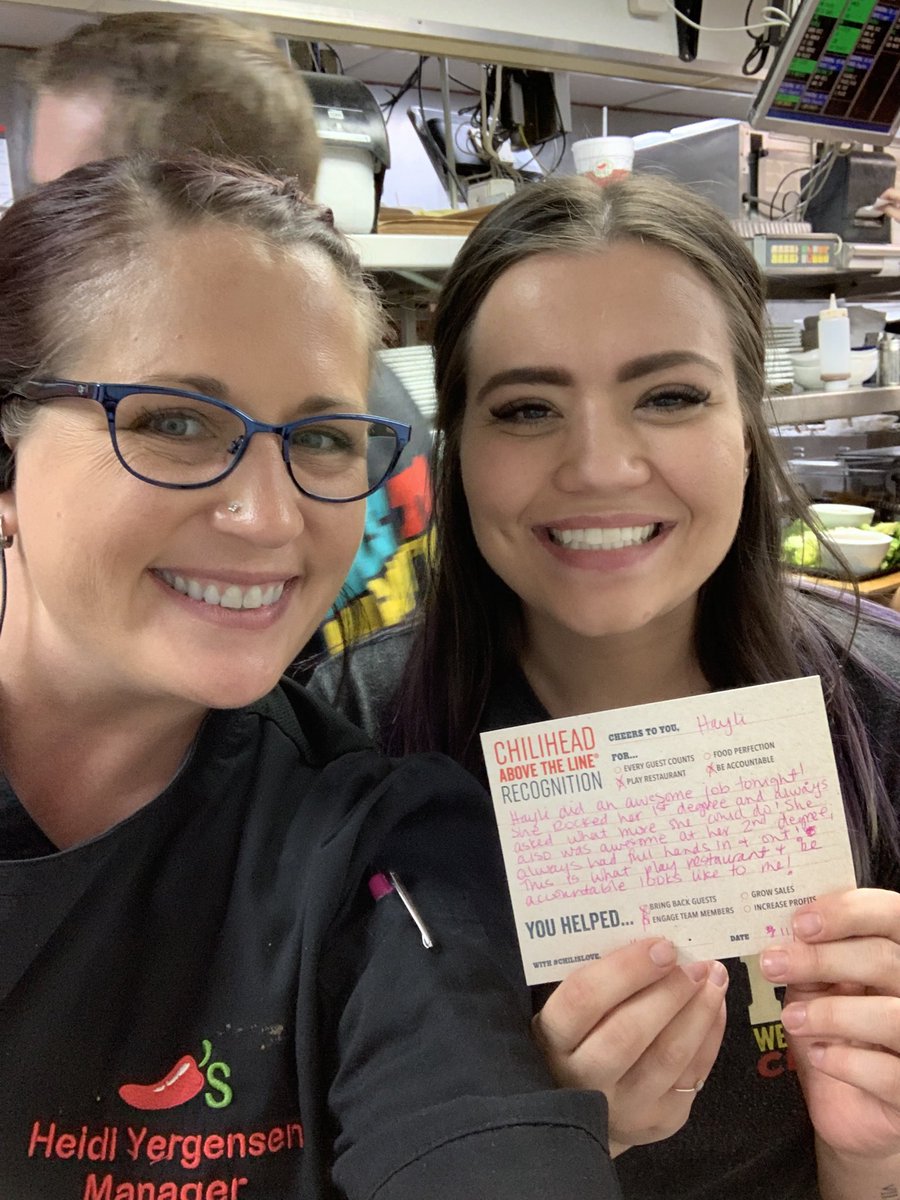 CHILIHEAD
ABOVE THE LINE®
RECOGNITION
CHEERS TO YOU, Hayli
FOR...
EVERY GUEST COUNTS
FOOD PERFECTION
PLAY RESTAURANT
BE ACCOUNTABLE
Hayli did an awesome job tonight!
She rocked her 1st degree and always
asked what more she could do! She
also was awesome at her 2nd degree,
always had full hands in + out!
This is what play restaurant + be
accountable looks like to me!
YOU HELPED...
BRING BACK GUESTS
GROW SALES
ENGAGE TEAM MEMBERS
INCREASE PROFITS
WITH #CHILISLOVE,
DATE
'S
Heidi Yergensen
Manager
WE